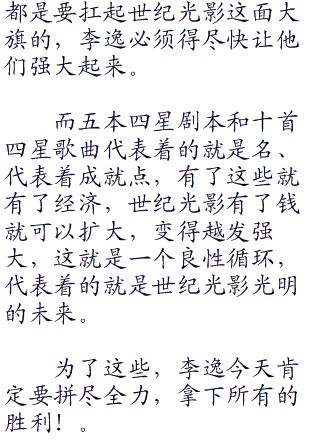 都是要扛起世纪光影这面大
旗的，李逸必须得尽快让他
们强大起来。
而五本四星剧本和十首
四星歌曲代表着的就是名、
代表着成就点，有了这些就
有了经济，世纪光影有了钱
就可以扩大，变得越发强
大，这就是一个良性循环，
代表着的就是世纪光影光明
的未来。
为了这些，李逸今天肯
定要拼尽全力，拿下所有的
胜利！。